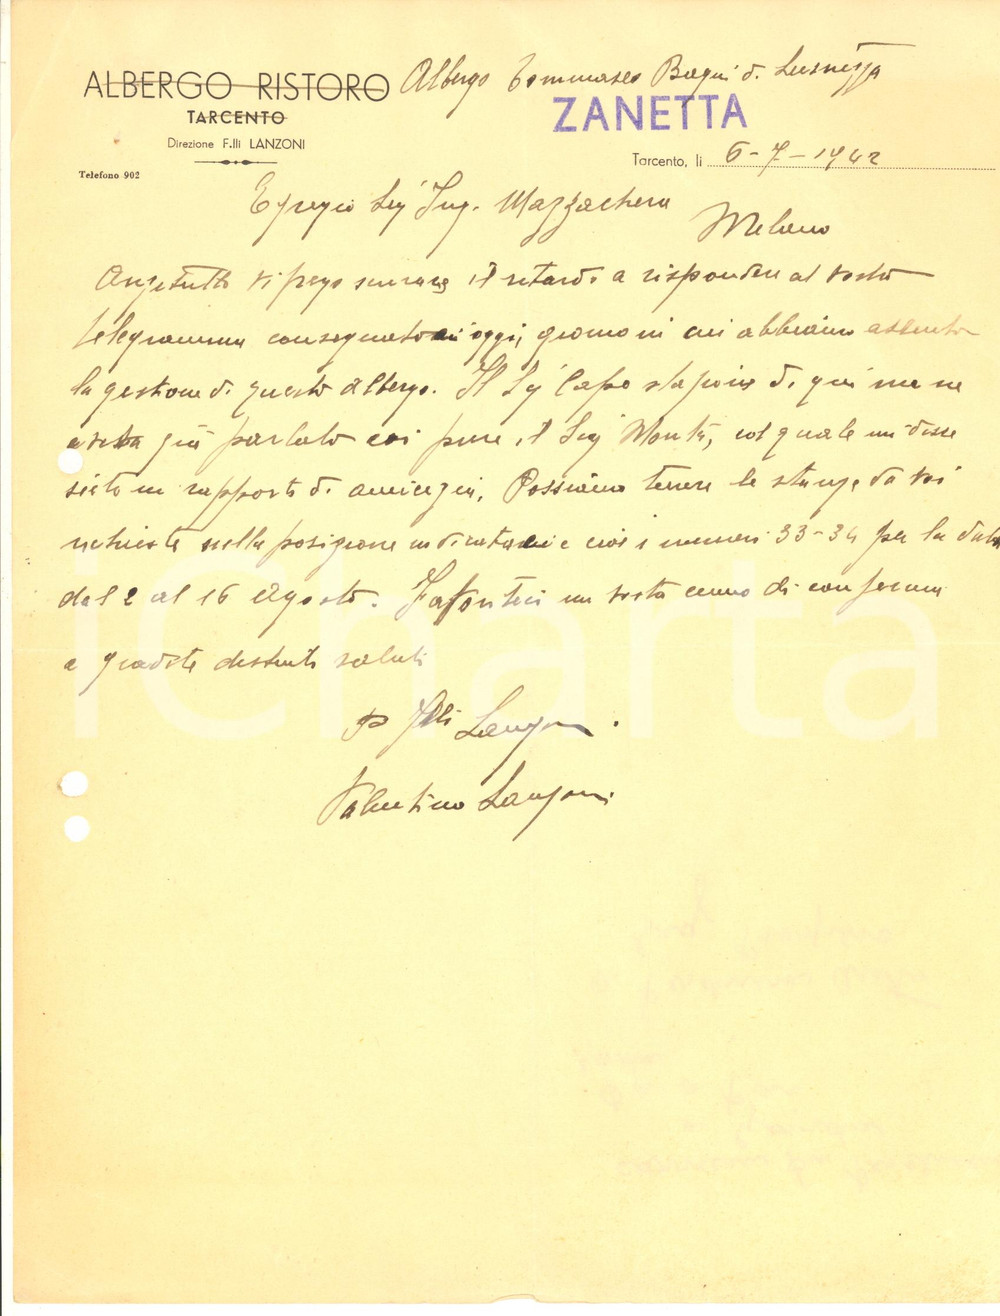 ALBERGO RISTORO
Albergo Tommaseo Bagni di Lusnizza
TARCENTO
ZANETTA
Direzione F.lli LANZONI
Tarcento, li 6-7-1942
Telefono 902
Egregio Sig Ing. Mazzachera
Milano
Anzitutto vi prego scusare il ritardo a rispondere al vostro
telegramma consegnatoci oggi, giorno in cui abbiamo assunto
la gestione di questo albergo. Il Sig Capo stazione di qui me ne
aveva già parlato così pure il Sig Monti, col quale mi disse
siete in rapporti di amicizia. Possiamo tenere le stanze da voi
richieste nella posizione indicataci e cioè i numeri 33-34 per la data
dal 2 al 16 Agosto. Fateci un vostro cenno di conferma
e gradite distinti saluti
p Flli Lanzoni.
Valentino Lanzoni
iCharta